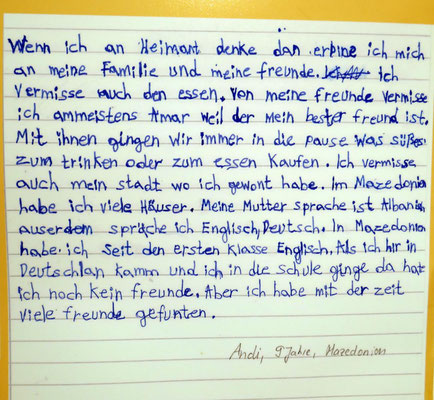 Wenn ich an Heimart denke dän erbine ich mich
an meine Familie und meine freunde. ich
Vermisse auch den essen. Von meine freunde vermisse
ich ammeistens Amar weil der mein bester freund ist.
Mit ihnen gingen wir immer in die pause was süßes
zum trinken oder zum essen Kaufen. Ich vermisse
auch mein stadt wo ich gewont habe. Im Mazedonien
habe ich viele Häuser. Meine Mutter sprache ist Albanisch
auserdem spräche ich Englisch, Deutsch. In Mazedonien
habe ich seit den ersten Klasse Englisch. Als ich hir in
Deutschlan kamm und ich in die schule ginge da hat
ich noch kein freunde. Aber ich habe mit der zeit
viele freunde gefunten.
Andi, 9 Jahre, Mazedonien